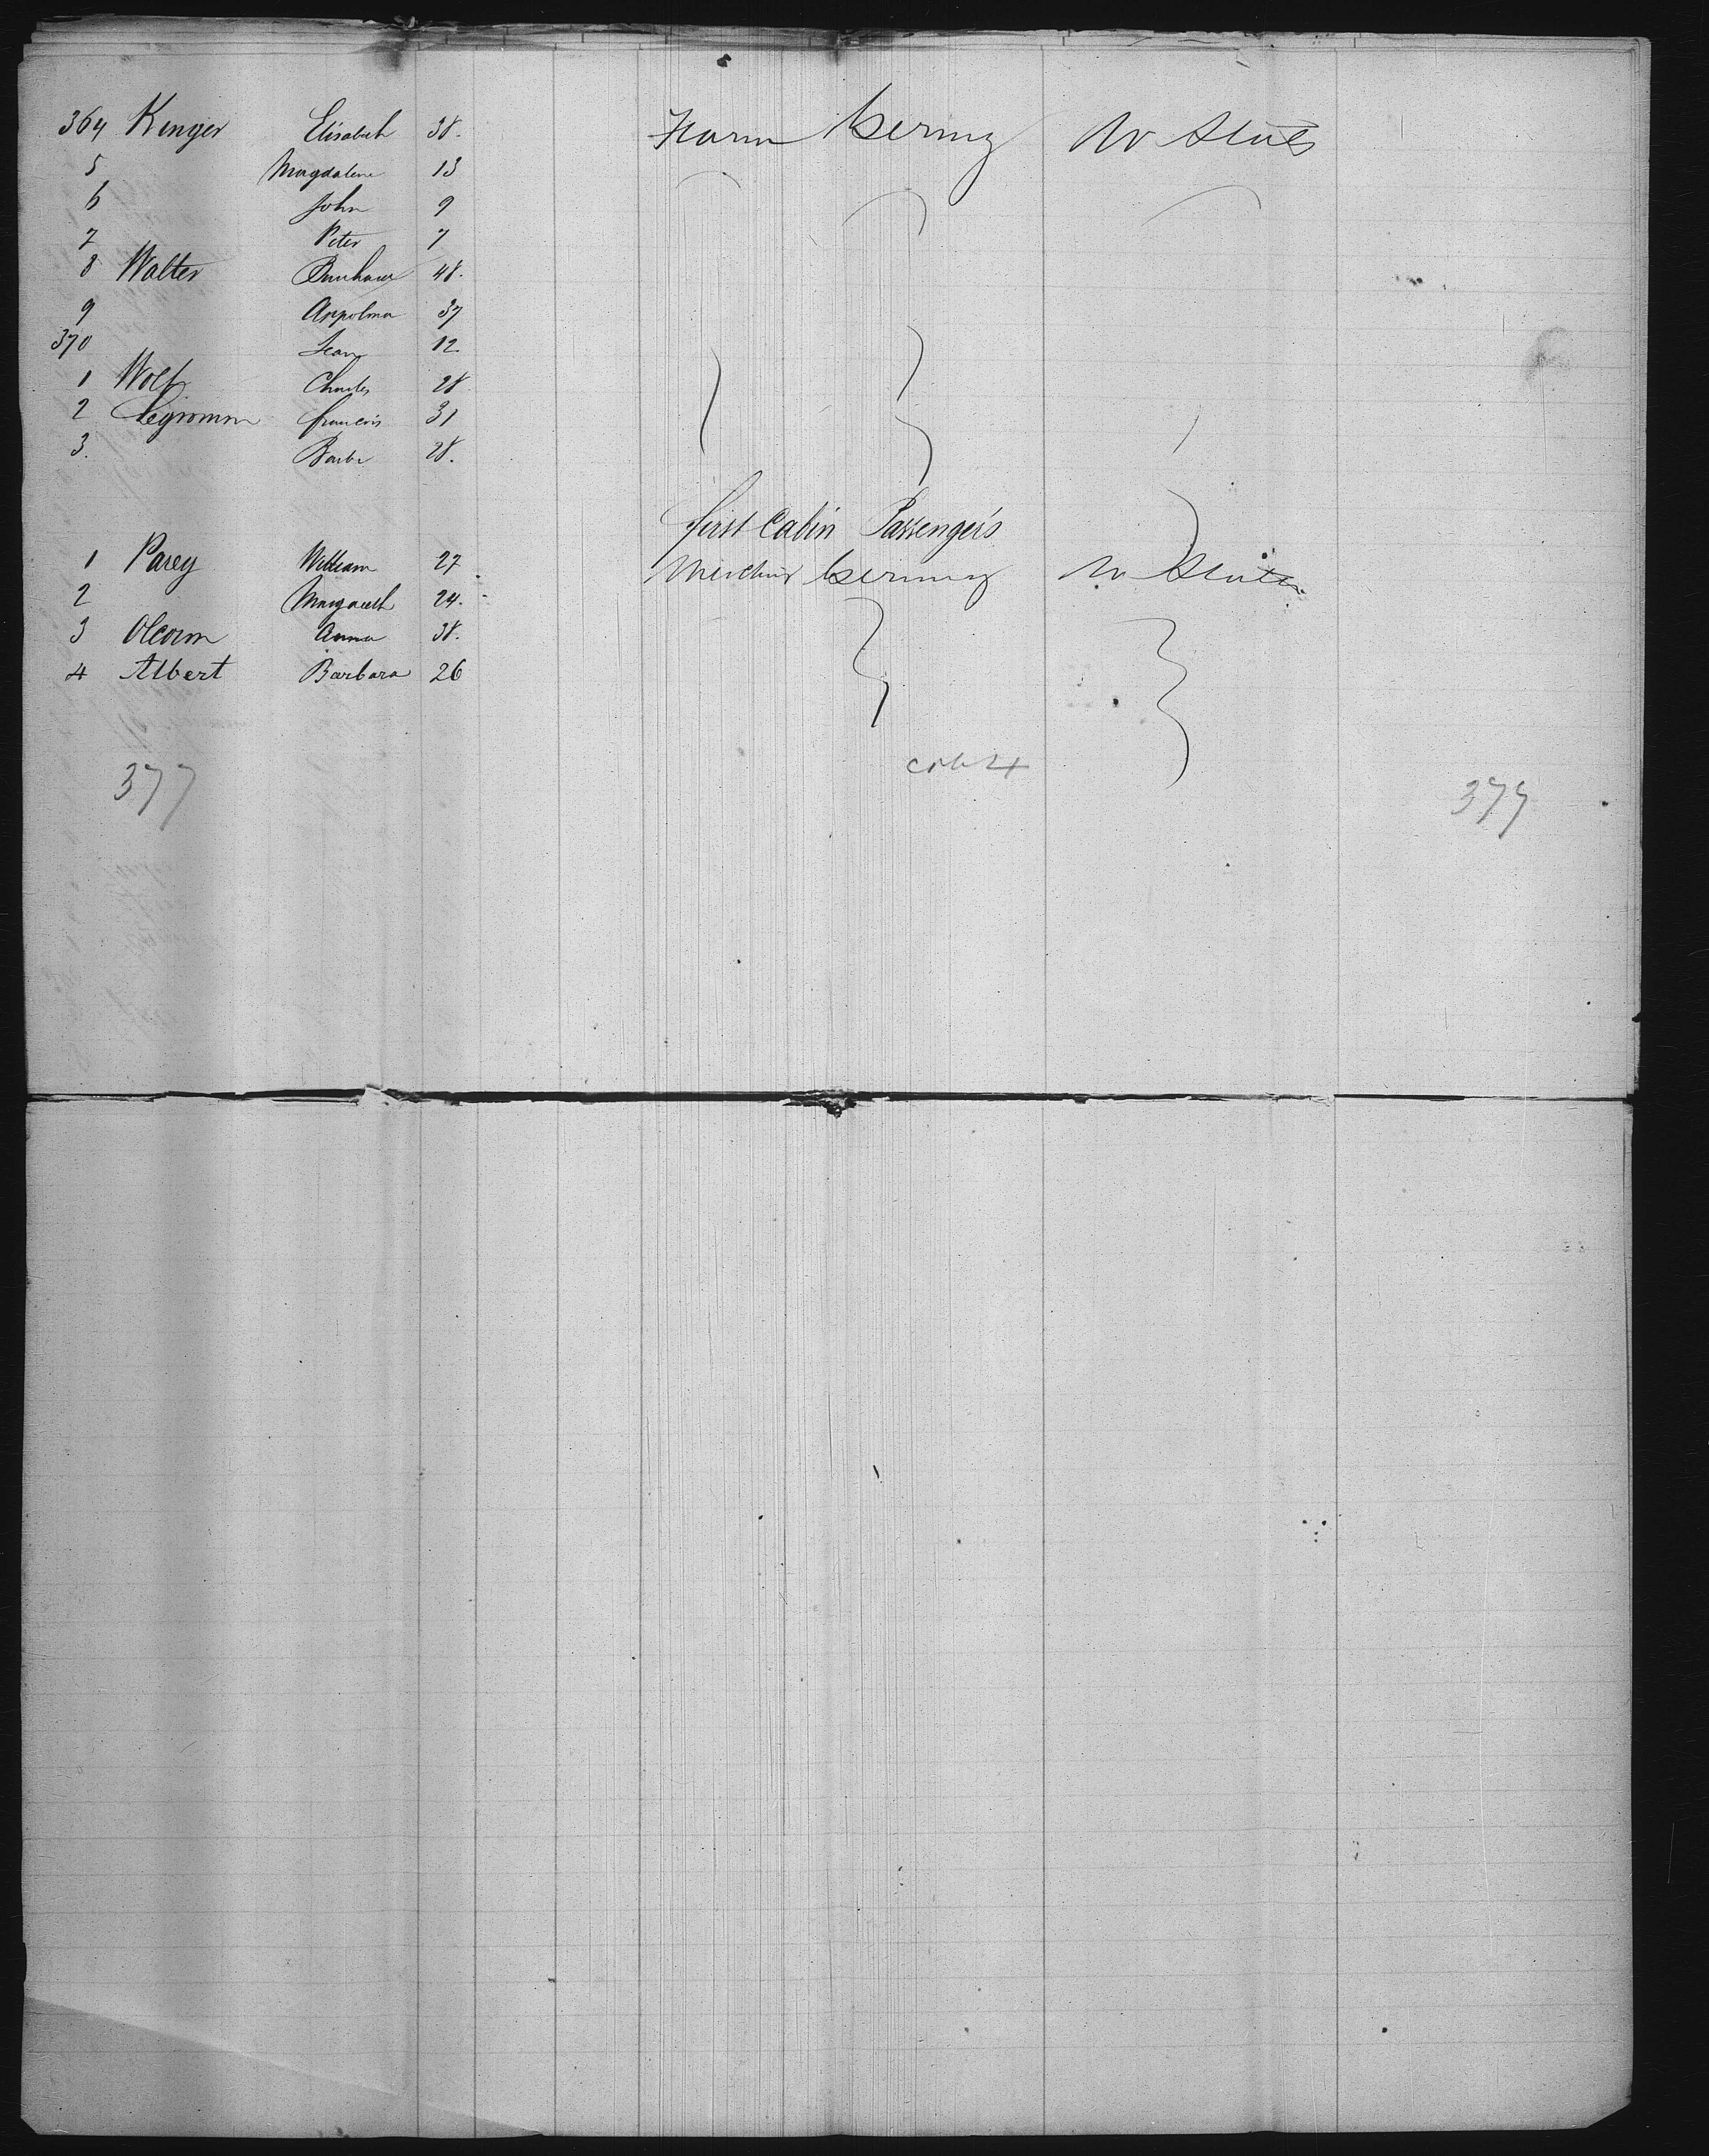 364 Kinger Elisabeth 38. Farm Germny U States
5 Magdalena 13
6 John 9
7 Peter 7
8 Walter 48.
9 Appolina 37
370 Jean 12
1 Wolf Charles 28
2 francois 31
3. Barbe 28.
first Cabin Passengers
1 Parey William 27 Merchant Germny U States
2 Margareth 24.
3 Olcorn Anna 38.
4 Albert Barbara 26
Cab 4
377 377